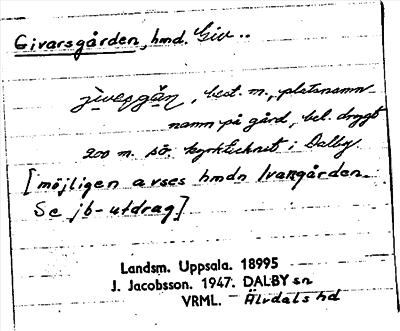 Givarsgården, hmd. Giv..
jìvesgǎn, best. m., platsnamn-
namn på gård, bel. drygt
200 m. SO. kyrktechnet i Dalby
[möjligen avses hmdn Ivarsgården.
Se jb-utdrag]
Landsm. Uppsala. 18995
J. Jacobsson. 1947. DALBY sn
VRML. - Älvdals hd